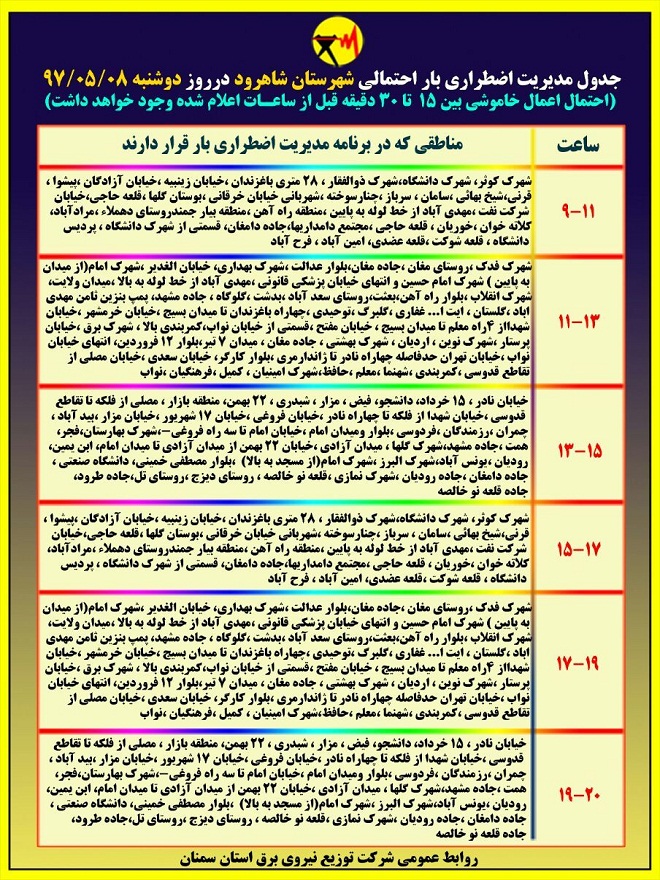 جدول مدیریت اضطراری بار احتمالی شهرستان شاهرود درروز دوشنبه ۹۷/۰۵/۰۸
(احتمال اعمال خاموشی بین ۱۵ تا ۳۰ دقیقه قبل از ساعـات اعلام شده وجود خواهد داشت)
ساعت
مناطقی که در برنامه مدیریت اضطراری بار قرار دارند
۹-۱۱
شهرک کوثر، شهرک دانشگاه،شهرک ذوالفقار ، ۲۸ متری باغزندان ،خیابان زینبیه ،خیابان آزادگان ،پیشوا ،
قرنی،شیخ بهائی ،سامان ، سرباز ،چنارسوخته ،شهربانی خیابان خرقانی ،بوستان گلها ،قلعه حاجی،خیابان
شرکت نفت ،مهدی آباد از خط لوله به پایین ،منطقه راه آهن ،منطقه بیار جمندروستای دهملاء ،مرادآباد،
کلاته خوان ،خوریان ، قلعه حاجی ،مجتمع دامداریها،جاده دامغان، قسمتی از شهرک دانشگاه ، پردیس
دانشگاه ، قلعه شوکت ،قلعه عضدی، امین آباد ، فرح آباد
۱۱-۱۳
شهرک فدک ،روستای مغان ،جاده مغان،بلوار عدالت ،شهرک بهداری، خیابان الغدیر ،شهرک امام(از میدان
به پایین ) شهرک امام حسین و انتهای خیابان پزشکی قانونی ،مهدی آباد از خط لوله به بالا ،میدان ولایت،
شهرک انقلاب ،بلوار راه آهن،بعثت،روستای سعد آباد ،بدشت ،گلوگاه ، جاده مشهد، پمپ بنزین ثامن مهدی
اباد ، گلستان ، ایت ا... غفاری ، گلبرگ ، توحیدی ،چهاراه باغزندان تا میدان بسیج ، خیابان خرمشهر ،خیابان
شهدااز ۴راه معلم تا میدان بسیج ، خیابان مفتح ،قسمتی از خیابان نواب،کمربندی بالا ، شهرک برق ،خیابان
پرستار ،شهرک نوین ، اردیان ، شهرک بهشتی ، جاده مغان ، میدان ۷ تیر،بلوار ۱۲ فروردین، انتهای خیابان
نواب ،خیابان تهران حدفاصله چهاراه نادر تا ژاندارمری ،بلوار کارگر، خیابان سعدی ،خیابان مصلی از
تقاطع قدوسی ،کمربندی ،شهنما ،معلم ،حافظ،شهرک امینیان ، کمیل ،فرهنگیان ،نواب
۱۳-۱۵
خیابان نادر ، ۱۵ خرداد، دانشجو، فیض ، مزار ، شیدری ، ۲۲ بهمن، منطقه بازار ، مصلی از فلکه تا تقاطع
قدوسی ،خیابان شهدا از فلکه تا چهاراه نادر ،خیابان فروغی ،خیابان ۱۷ شهریور ،خیابان مزار ،بید آباد ،
چمران ،رزمندگان ،فردوسی ،بلوار ومیدان امام ،خیابان امام تا سه راه فروغی-،شهرک بهارستان،فجر،
همت ،جاده مشهد،شهرک گلها ، میدان آزادی ،خیابان ۲۲ بهمن از میدان آزادی تا میدان امام، ابن یمین،
رودیان ،یونس آباد،شهرک البرز ،شهرک امام(از مسجد به بالا) ،بلوار مصطفی خمینی، دانشگاه صنعتی ،
جاده دامغان ،جاده رودیان ،شهرک نمازی ،قلعه نو خالصه ، روستای دیزج ،روستای تل،جاده طرود،
جاده قلعه نو خالصه
۱۵-۱۷
شهرک کوثر، شهرک دانشگاه،شهرک ذوالفقار ، ۲۸ متری باغزندان ،خیابان زینبیه ،خیابان آزادگان ،پیشوا ،
قرنی،شیخ بهائی ،سامان ، سرباز ،چنارسوخته ،شهربانی خیابان خرقانی ،بوستان گلها ،قلعه حاجی،خیابان
شرکت نفت ،مهدی آباد از خط لوله به پایین ،منطقه راه آهن ،منطقه بیار جمندروستای دهملاء ،مرادآباد،
کلاته خوان ،خوریان ، قلعه حاجی ،مجتمع دامداریها،جاده دامغان، قسمتی از شهرک دانشگاه ، پردیس
دانشگاه ، قلعه شوکت ،قلعه عضدی، امین آباد ، فرح آباد
۱۷-۱۹
شهرک فدک ،روستای مغان ،جاده مغان،بلوار عدالت ،شهرک بهداری، خیابان الغدیر ،شهرک امام(از میدان
به پایین ) شهرک امام حسین و انتهای خیابان پزشکی قانونی ،مهدی آباد از خط لوله به بالا ،میدان ولایت،
شهرک انقلاب ،بلوار راه آهن،بعثت،روستای سعد آباد ،بدشت ،گلوگاه ، جاده مشهد، پمپ بنزین ثامن مهدی
اباد ، گلستان ، ایت ا... غفاری ، گلبرگ ، توحیدی ،چهاراه باغزندان تا میدان بسیج ، خیابان خرمشهر ،خیابان
شهدااز ۴راه معلم تا میدان بسیج ، خیابان مفتح ،قسمتی از خیابان نواب،کمربندی بالا ، شهرک برق ،خیابان
پرستار ،شهرک نوین ، اردیان ، شهرک بهشتی ، جاده مغان ، میدان ۷ تیر،بلوار ۱۲ فروردین، انتهای خیابان
نواب ،خیابان تهران حدفاصله چهاراه نادر تا ژاندارمری ،بلوار کارگر، خیابان سعدی ،خیابان مصلی از
تقاطع قدوسی ،کمربندی ،شهنما ،معلم ،حافظ،شهرک امینیان ، کمیل ،فرهنگیان ،نواب
۱۹-۲۰
خیابان نادر ، ۱۵ خرداد، دانشجو، فیض ، مزار ، شیدری ، ۲۲ بهمن، منطقه بازار ، مصلی از فلکه تا تقاطع
قدوسی ،خیابان شهدا از فلکه تا چهاراه نادر ،خیابان فروغی ،خیابان ۱۷ شهریور ،خیابان مزار ،بید آباد ،
چمران ،رزمندگان ،فردوسی ،بلوار ومیدان امام ،خیابان امام تا سه راه فروغی-،شهرک بهارستان،فجر،
همت ،جاده مشهد،شهرک گلها ، میدان آزادی ،خیابان ۲۲ بهمن از میدان آزادی تا میدان امام، ابن یمین،
رودیان ،یونس آباد،شهرک البرز ،شهرک امام(از مسجد به بالا) ،بلوار مصطفی خمینی، دانشگاه صنعتی ،
جاده دامغان ،جاده رودیان ،شهرک نمازی ،قلعه نو خالصه ، روستای دیزج ،روستای تل،جاده طرود،
جاده قلعه نو خالصه
روابط عمومی شرکت توزیع نیروی برق استان سمنان